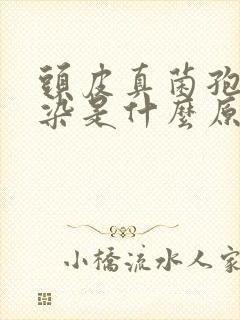 頭皮真菌孢
染是什麼原
小橋流水人家